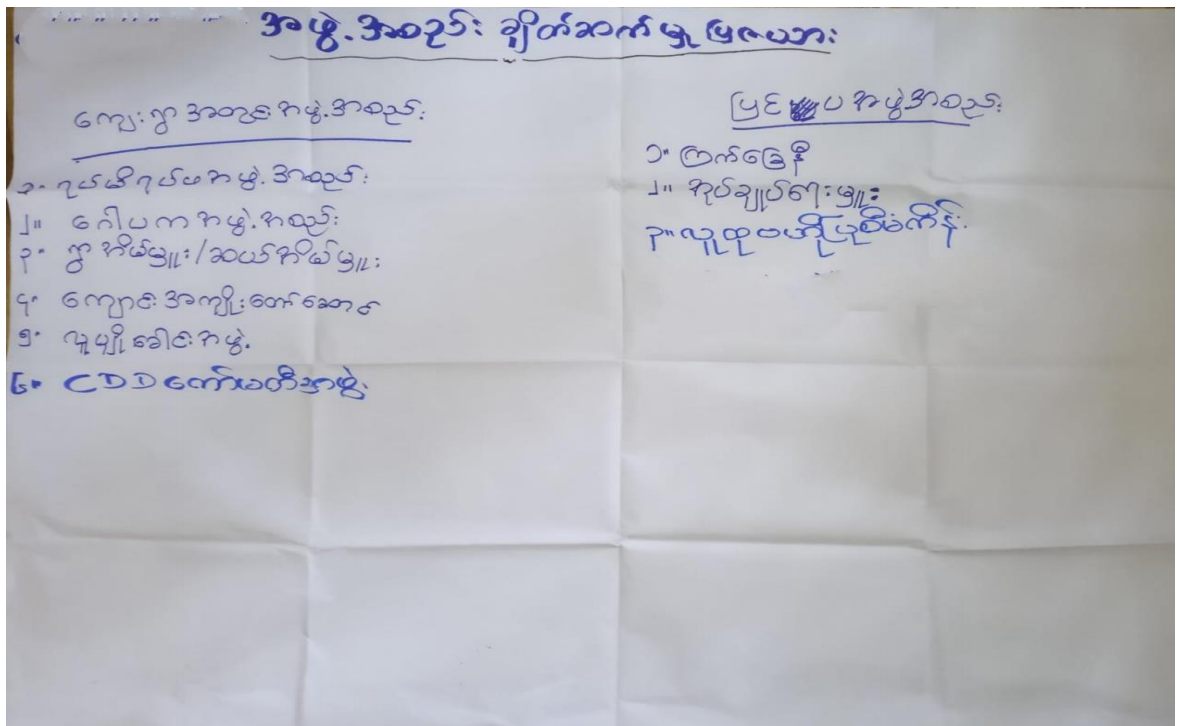 အဖွဲ့အစည်း ချိတ်ဆက်မှု ပြဇယား
ကျေးရွာ အတွင်း အဖွဲ့အစည်း
၁။ ရပ်မိရပ်ဖ အဖွဲ့အစည်း
၂။ ဂေါပက အဖွဲ့အစည်း
၃။ ရွာအိမ်မှူး/ဆယ်အိမ်မှူး
၄။ ကျောင်းအကျိုးတော်ဆောင်
၅။ လူပျိုခေါင်းအဖွဲ့
၆။ CDD ကော်မတီအဖွဲ့
ပြင်ပ အဖွဲ့အစည်း
၁။ ကြက်ခြေနီ
၂။ အုပ်ချုပ်ရေးမှူး
၃။ လူထုဗဟိုပြုစီမံကိန်း